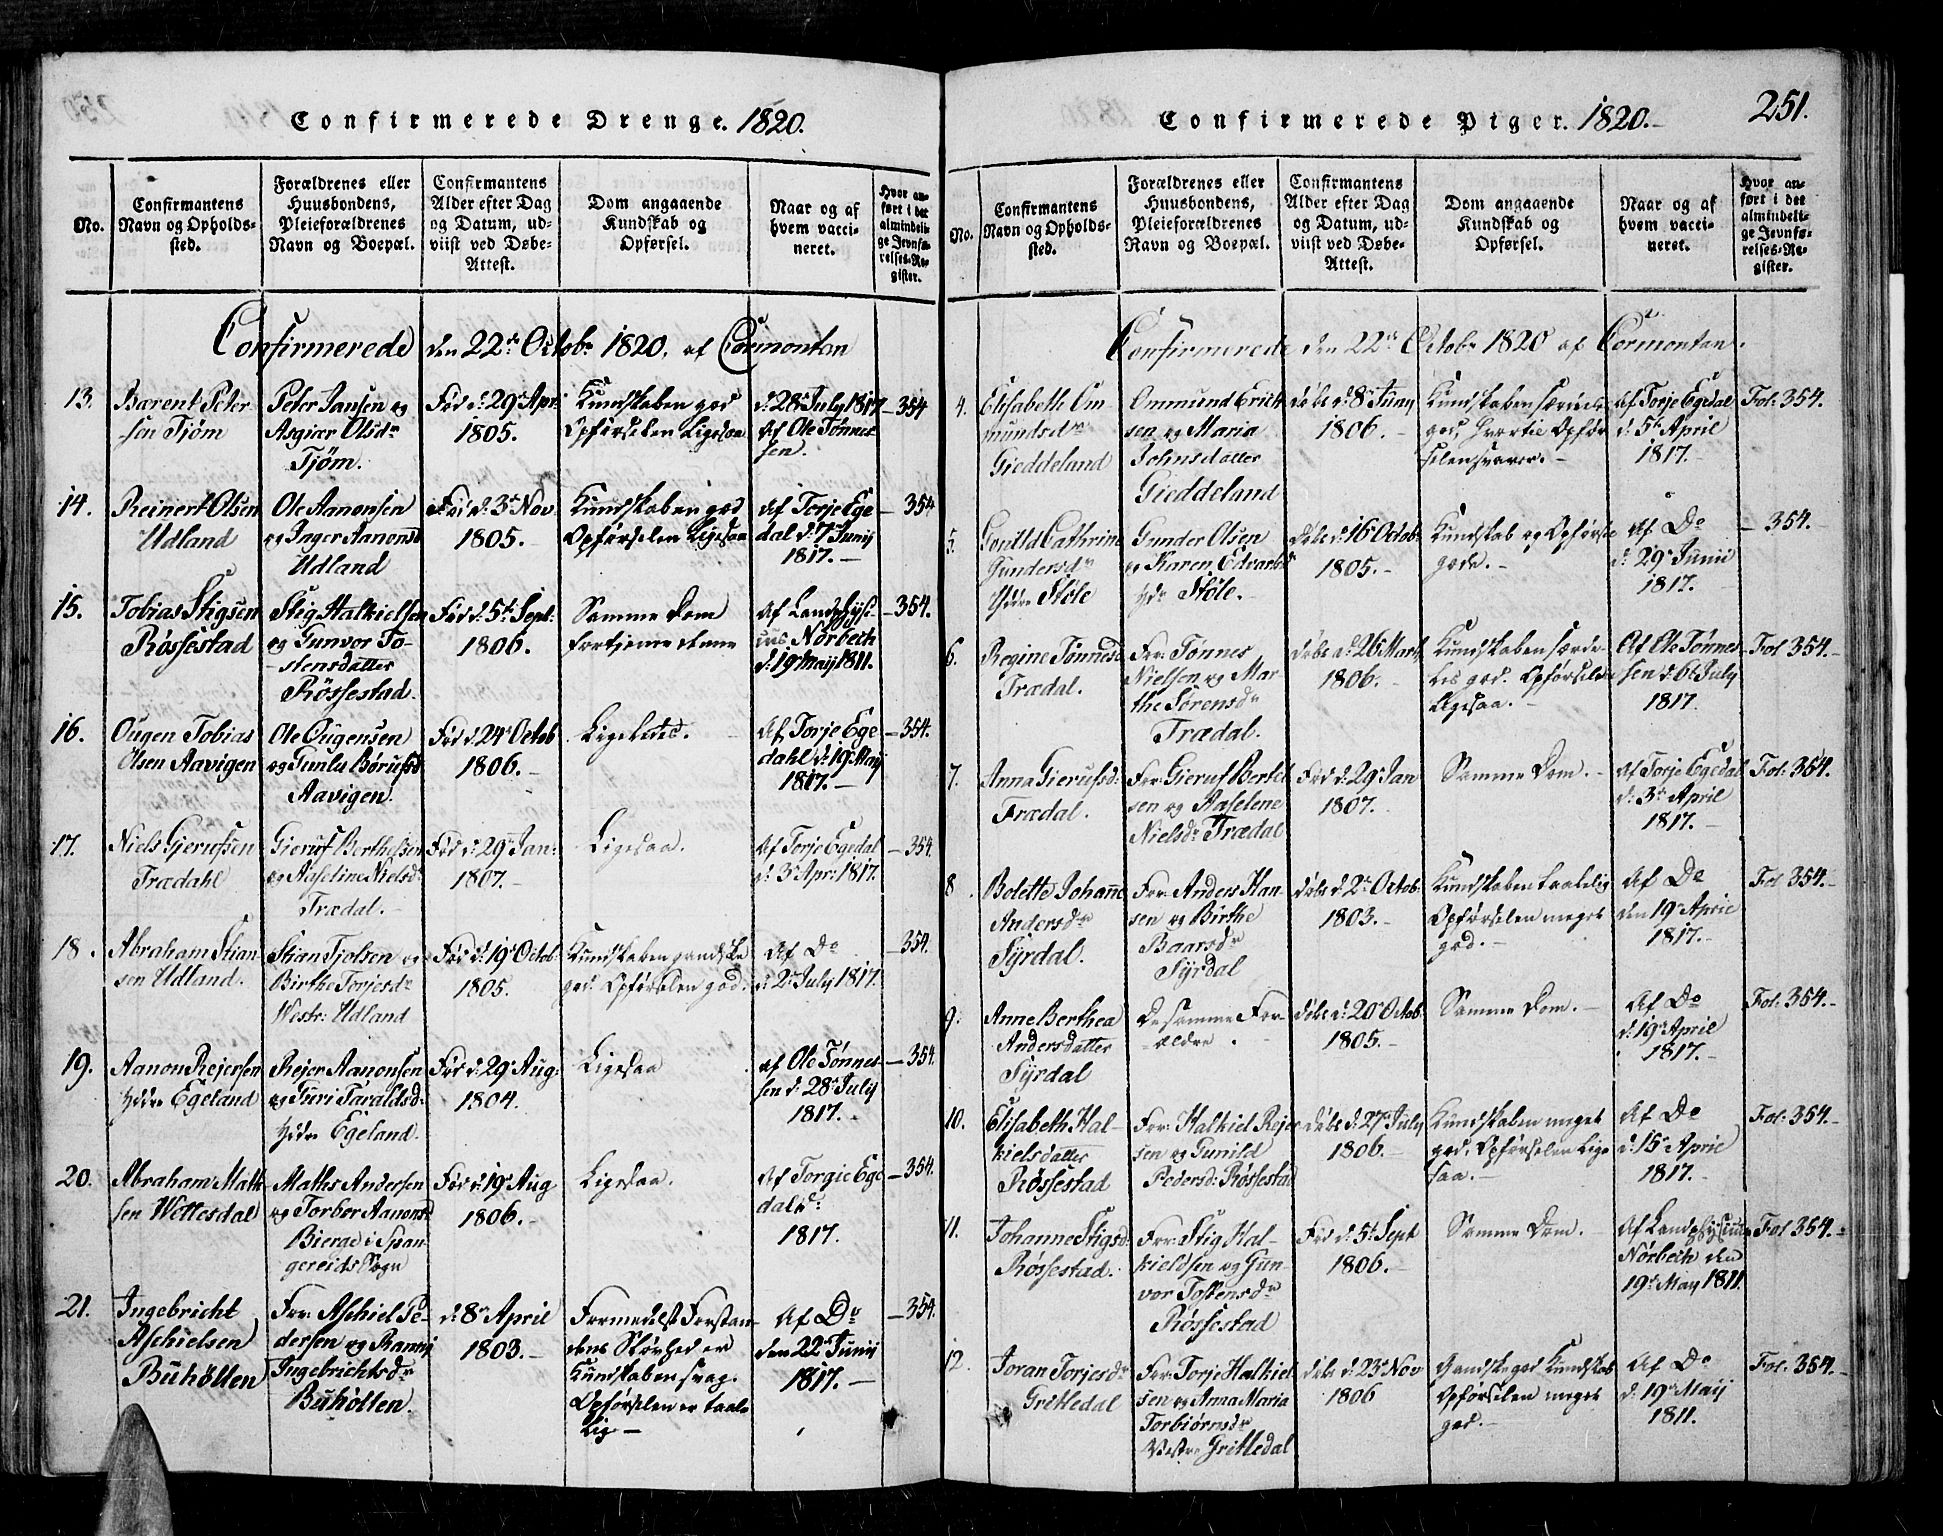 Confirmerede Drenge. 1820.
No.
Confirmantens
Navn og Opholds-
sted.
Forældrenes eller
Huusbondens,
Pleieforældrenes
Navn og Boepæl.
Confirmantens
Alder efter Dag
og Datum, ud-
viist ved Døbe-
Attest.
Dom angaaende
Kundskab og
Opførsel.
Naar og af
hvem vacci-
neret.
Hvor an-
ført i det
almindeli-
ge Jevnfø-
relses-Re-
gister.
Confirmerede den 22de Octobr 1820. af Cormontan
13.
Barent Peter
sen Tjöm
Peter Jansen og
Asgier Olsdr
Tjöm.
Fød d: 29de Apr:
1805.
Kundskaben god
Opførselen Ligesaa
d: 28de July 1817
Af Ole Tønnes
sen.
354
14.
Reinert Olsen
Udland
Ole Aanonsen
og Inger Aanonsd
Udland
Fød d: 3de Nov
1805.
Kundskaben god
Opførselen Ligesaa
Af Torje Ege
dal d: 7de Junij
1817.
354
15.
Tobias Stigsen
Røssestad
Stig Halkielsen
og Gunvor To-
stensdatter
Røssestad.
Fød d: 5te Sept:
1806.
Samme Dom
fortjener denne
Af Landphysi
cus Nörbech
d: 19de Maij 1811.
354.
16.
Ougen Tobias
Olsen Aavigen
Ole Ougensen
og Gunlu Børufsd
Aavigen.
Fød d: 24de Octob
1806.
Ligeledes.
Af Torje Ege
dahl d: 19de Maij
1817.
354.
17.
Niels Gjerufsen
Trædahl
Gieruf Berthelsen
og Aaseline Nielsd
Trædal.
Fød d: 29de Jan:
1807.
Ligesaa.
Af Torje Egedal
d: 3de Apr: 1817.
354.
18.
Abraham Stian
sen Udland.
Stian Tjolsen og
Birthe Torjesdr
Westr: Udland
Fød d: 19de Octob:
1805.
Kundskaben gandske
god. Opførselen god.
Af Do
d: 2de July 1817.
354.
19.
Aanon Rejersen
Ydre Egeland
Rejer Aanonsen
og Turi Taraldsd:
Ydre Egeland.
Fød d: 29de Aug:
1804.
Ligesaa
af Ole Tønnes
sen d: 28de July
1817.
354
20.
Abraham Math
sen Wettesdal
Mathis Andersen
og Torbor Aanonsd
Bierge i Span
gereids Sogn
Fød d: 19de Aug
1806.
Ligesaa.
Af Torgie Ege
dal d:
1817.
354.
21.
Ingebricht
Aschielsen
Buhölten
For: Aschiel Pe
dersen og Ranvij
Ingebrichtsdr
Buhölten.
d: 8de April
1803.
Formedelst Forstan-
dens Sløvhed er
Kundskaben svag.
Opførselen er taale
lig
Af Do
den 22de Junij
1817.
354.
Confirmerede Piger. 1820.
251.
No.
Confirmantens
Navn og Opholds-
sted.
Forældrenes eller
Huusbondens,
Pleieforældrenes
Navn og Boepæl.
Confirmantens
Alder efter Dag
og Datum, ud-
viist ved Døbe-
Attest.
Dom angaaende
Kundskab og
Opførsel.
Naar og af
hvem vacci-
neret.
Hvor an-
ført i det
almindeli-
ge Jevnfø-
relses-Re-
gister.
Confirmerede den 22de Octobr 1820 af Cormontan.
4.
Elisabeth Om-
mundsdr
Gieddeland
Ommund Erich
sen og Maria
Johnsdatter
Gieddeland
døbt d: 8de Junij
1806.
Kundskaben særdeles
god, hvortil Opfør
selen svarer.
Af Torje Egedal
d: 5te April
1817.
Fol: 354.
5.
Gonild Cathrine
Gundersdr
Ydre Støle
Gunder Olsen
og Karen Edvardsd
ydr Støle.
døbt d: 16de Octob:
1805.
Kundskab og Opførsel
gode.
Af Do
d: 29de Junii
1817.
354.
6.
Regine Tønnesd
Trædal.
For: Tønnes
Nielsen og Mar
the Sørensdr
Trædal.
døbt d: 26 Marts
1806.
Kundskaben særde-
les god. Opførselen
Ligesaa.
Af Ole Tønnes
sen d: 6te July
1817.
Fol 354.
7.
Anna Gierufsd:
Trædal.
For: Gieruf Bertel
sen og Aaselene
Nielsdr Trædal
Fød d: 29de Jan
1807.
Samme Dom.
af Torje Egedal
d: 3de April
1817.
Fol: 354.
8.
Bolette Johanne
Andersdr
Syrdal.
For: Anders Han
sen og Birthe
Baarsdr
Syrdal
døbt d: 2de Octob.
1803.
Kundskaben taalelig
Opførselen meget
god.
Af Do
den 19de April
1817.
Fol 354.
9.
Anne Berthea
Andersdatter
Syrdal
De samme For-
ældre.
døbt d: 20de Octob.
1805.
Samme Dom.
Af Do
d: 19de April
1817.
Fol. 354.
10.
Elisabeth Hal-
kielsdatter
Røssestad
For: Halkiel Rejer
sen og Gunild
Pedersd: Røssestad
døbt d: 27de July
1806.
Kundskaben meget
god. Opførselen Lige
saa.
Af Do
d: 15de April
1817.
Fol: 354.
11.
Johanne Stigsd:
Røssestad.
For: Stig Hal-
kieldsen og Gun
vor Tostensdr
Røssestad
Fød d: 5te Sept
1806.
Samme Dom.
Af Landphysicus
Nörbech den
19de May 1811.
Fol 354.
12.
Joran Torjesdr
Gritledal
For: Torje Halkiel
sen og Anna Maria
Torbiörnsdr
Vestr: Gritledal
døbt d: 23de Nov
1806
Gandske god Kundskab
Opførselen meget
god.
Af Do
d: 19de Maij
1811.
Fol: 354.